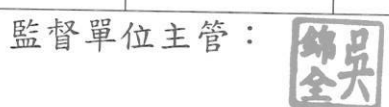 監督單位主管：
吳錦全